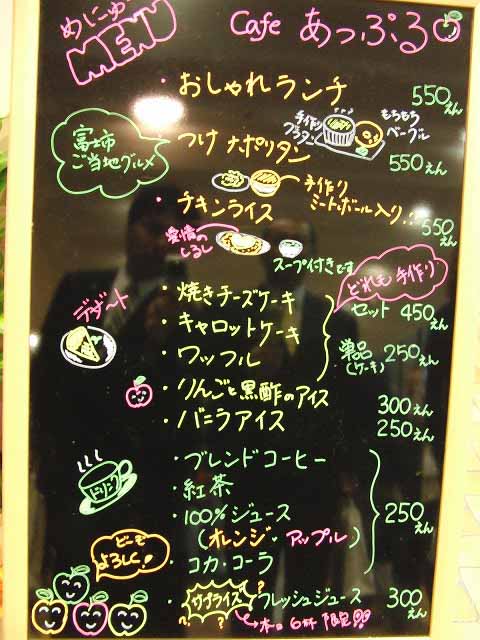 めにゅー
MENU
Cafe あっぷる
・おしゃれランチ 550えん
手作りグラタン
もちもちベーグル
富士市
ご当地グルメ
・つけナポリタン 550えん
手作り
ミートボール入り!!
・チキンライス 550えん
愛情の
しるし
スープ付きです
どれも手作り
デザート
・焼きチーズケーキ
・キャロットケーキ
・ワッフル
セット 450えん
単品 250えん
(ケーキ)
・りんごと黒酢のアイス 300えん
・バニラアイス 250えん
ドリンク
・ブレンドコーヒー
・紅茶
・100%ジュース
(オレンジ・アップル)
・コカ・コーラ
250えん
どーも
よろしく!
・サプライズ フレッシュジュース 300えん
本日6杯限定!!